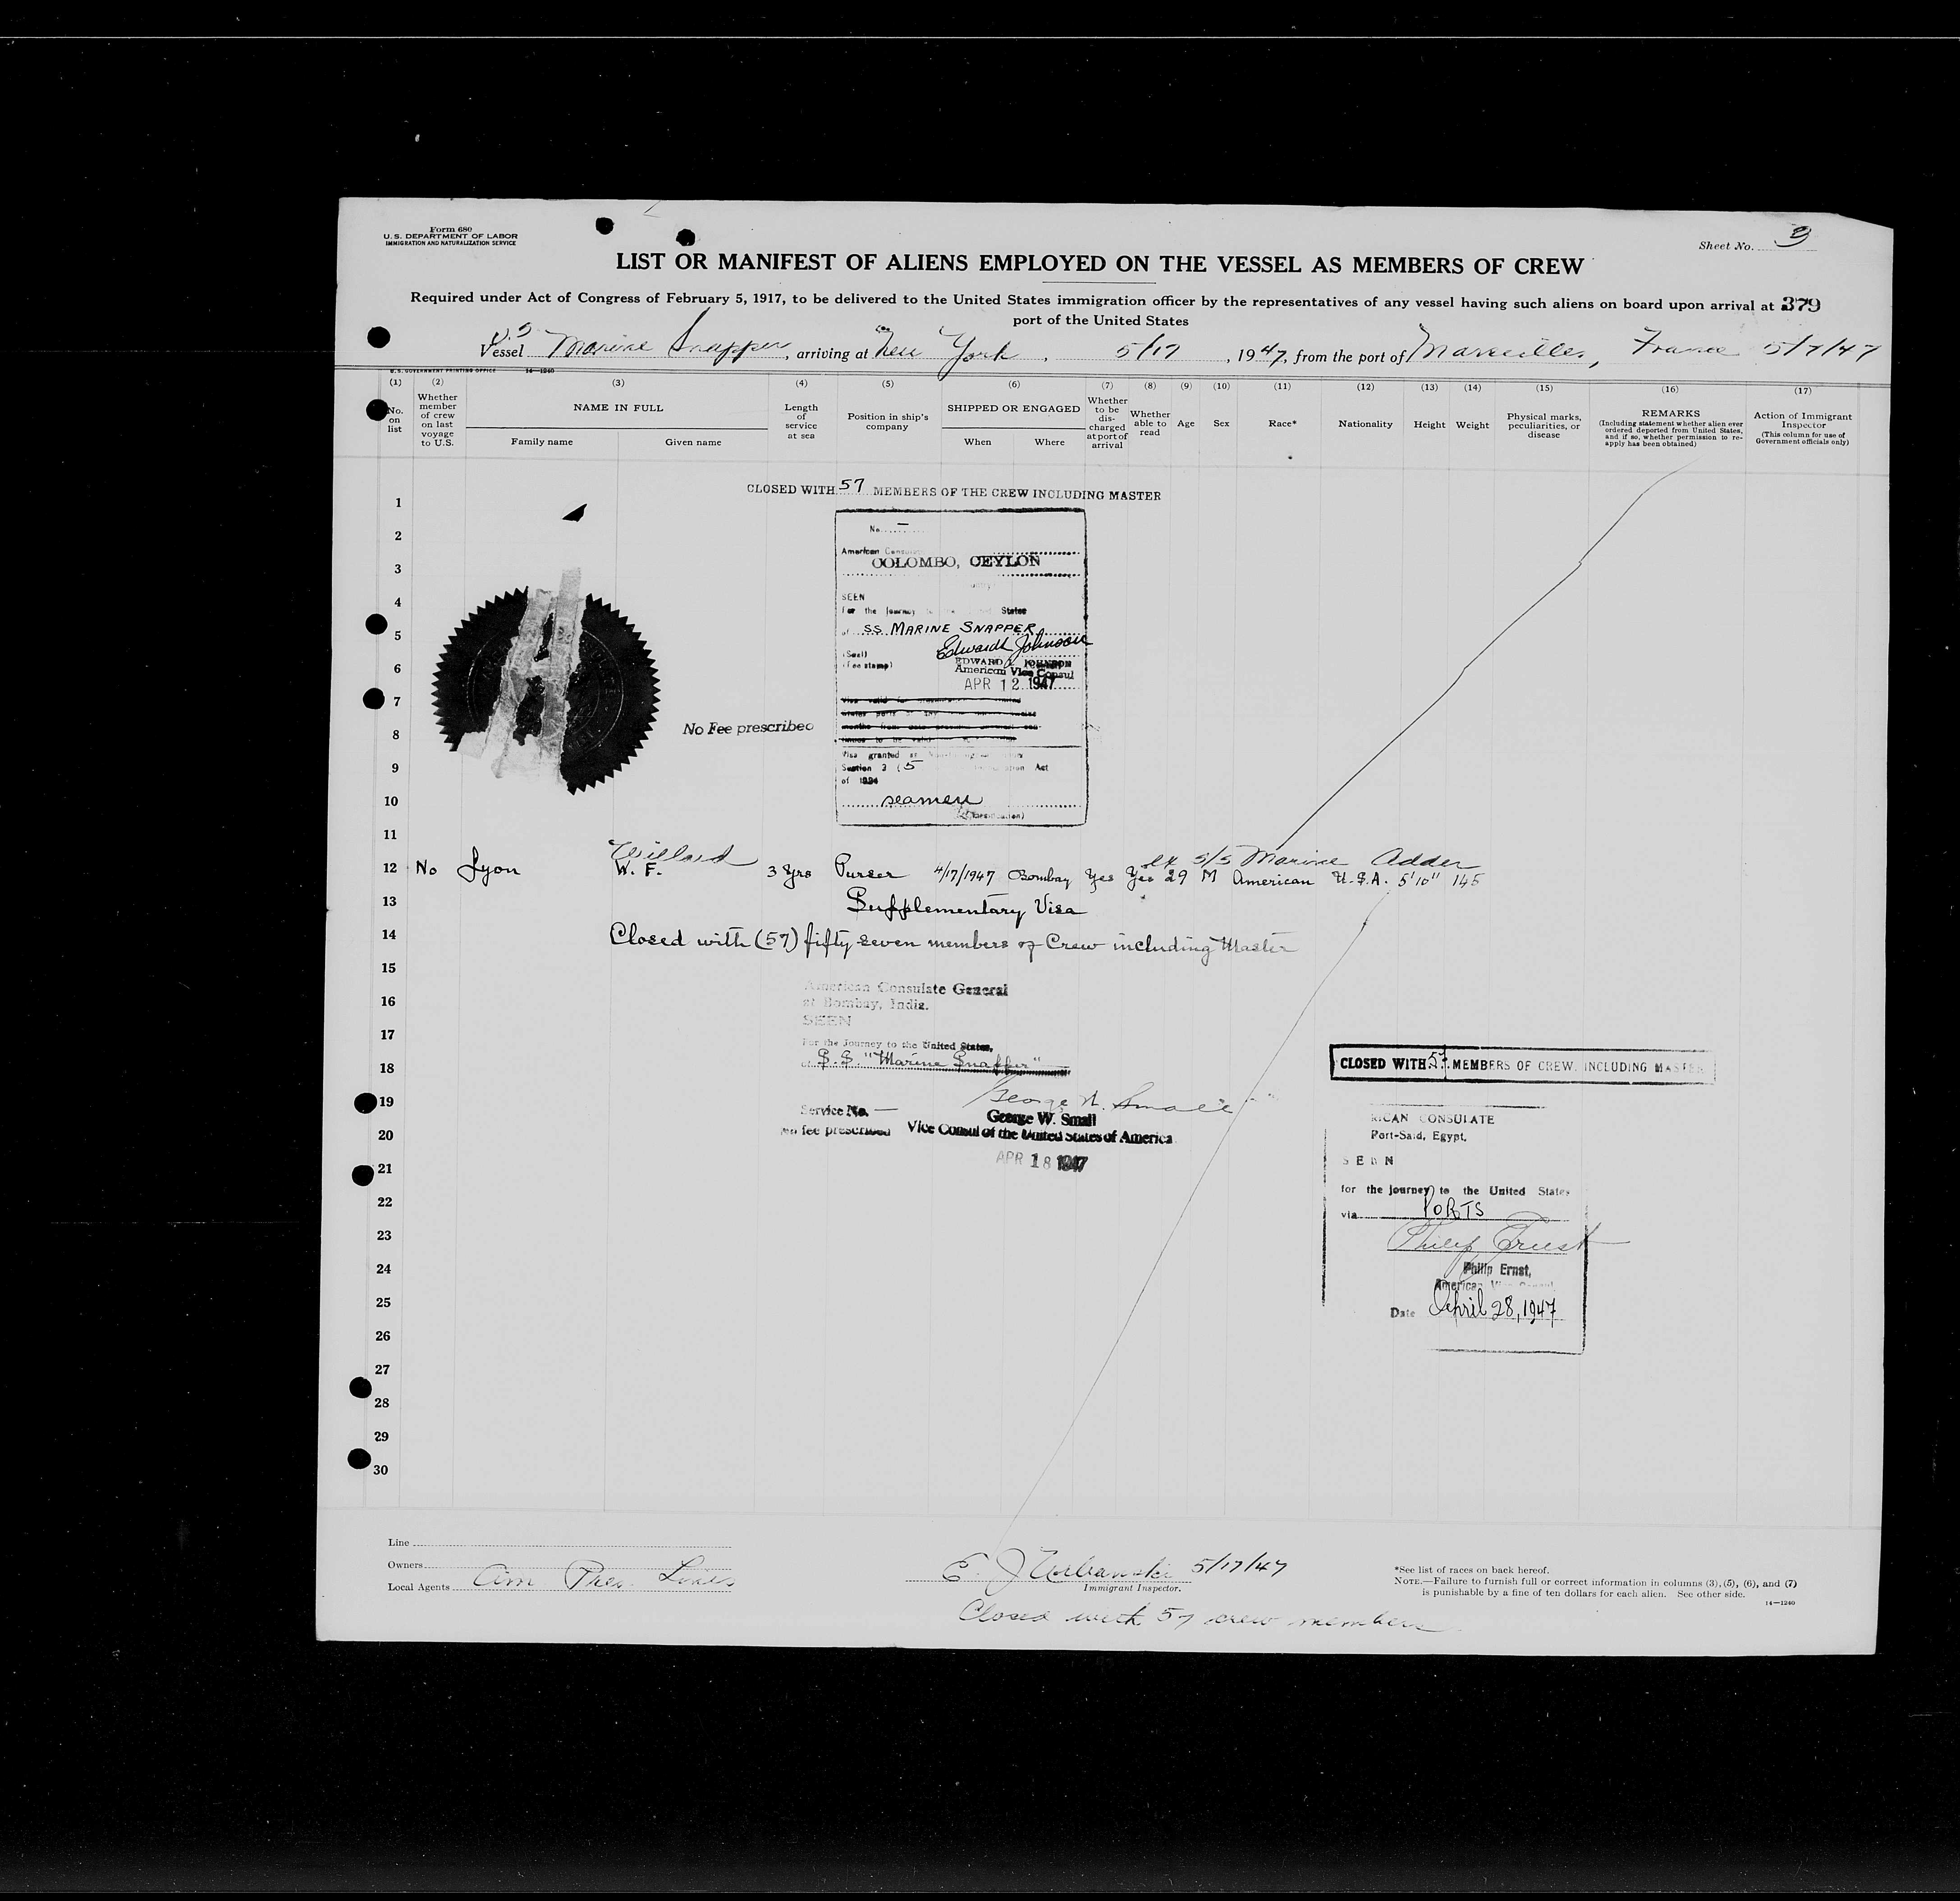 Form 680
U. S. DEPARTMENT OF LABOR
IMMIGRATION AND NATURALIZATION SERVICE
Sheet No. 3
LIST OR MANIFEST OF ALIENS EMPLOYED ON THE VESSEL AS MEMBERS OF CREW
Required under Act of Congress of February 5, 1917, to be delivered to the United States immigration officer by the representatives of any vessel having such aliens on board upon arrival at 379
port of the United States
Vessel Marine Snapper, arriving at New York, 5/17, 1947, from the port of Marseilles, France 5/7/47
U. S. GOVERNMENT PRINTING OFFICE 14—1240
(1) (2) (3) (4) (5) (6) (7) (8) (9) (10) (11) (12) (13) (14) (15) (16) (17)
No. on list
Whether member of crew on last voyage to U.S.
NAME IN FULL
Family name
Given name
Length of service at sea
Position in ship's company
SHIPPED OR ENGAGED
When
Where
Whether to be discharged at port of arrival
Whether able to read
Age
Sex
Race*
Nationality
Height
Weight
Physical marks, peculiarities, or disease
REMARKS
(Including statement whether alien ever ordered deported from United States, and if so, whether permission to reapply has been obtained)
Action of Immigrant Inspector
(This column for use of Government officials only)
CLOSED WITH 57 MEMBERS OF THE CREW INCLUDING MASTER
1
2
3
4
5
6
7
8
9
10
11
No.
American
COLOMBO, CEYLON
SEEN
For the journey States
of SS MARINE SNAPPER
Edward Johnson
(Seal)
(Fee stamp)
EDWARD JOHNSON
American Vice Consul
APR 12 1947
No Fee prescribed
Visa granted as
Section 3 (5 Act
of 1924
seamen
Willard ex S/S Marine Adder
12 No Lyon W. F. 3 Yrs Purser 4/17/1947 Bombay Yes Yes 29 M American U.S.A. 5'10" 145
13 Supplementary Visa
14 Closed with (57) fifty seven members of Crew including Master
15
16
17
18
19
20
21
22
23
24
25
26
27
28
29
30
American Consulate General
at Bombay, India.
SEEN
For the Journey to the United States,
of S.S. "Marine Snapper"
George W. Small
Service No. —
George W. Small
No fee prescribed Vice Consul of the United States of America
APR 18 1947
CLOSED WITH 57 MEMBERS OF CREW, INCLUDING MASTER
RICAN CONSULATE
Port-Said, Egypt.
SEEN
for the journey to the United States
via PORTS
Philip Ernst
Philip Ernst,
American Vice Consul
Date April 28, 1947
Line
Owners
Local Agents Am Pres. Lines
E. J Urbanski 5/17/47
Immigrant Inspector.
Closed with 57 crew members
*See list of races on back hereof.
NOTE.—Failure to furnish full or correct information in columns (3), (5), (6), and (7)
is punishable by a fine of ten dollars for each alien. See other side.
14—1240